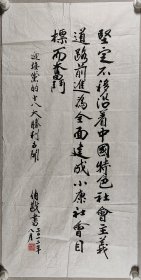 堅定不移沿着中國特色社會主義
道路前進為全面建成小康社會目
標而奮鬥
迎接黨的十八大勝利召開
伯毅書
二〇一二年八月